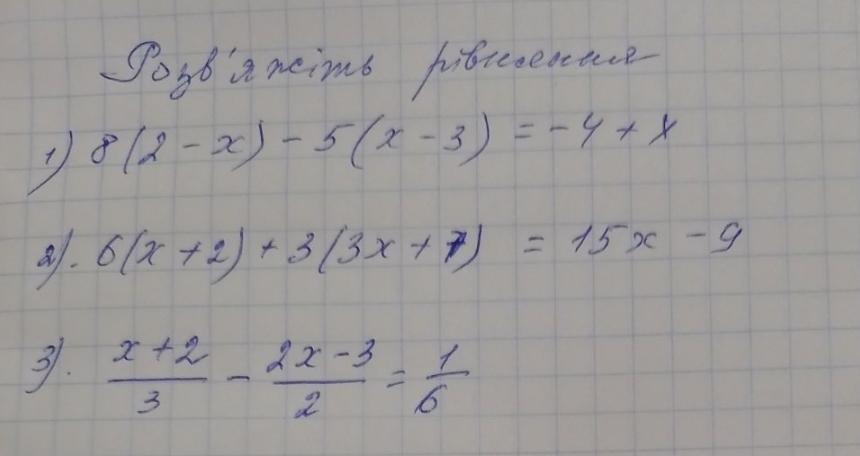 Розв'яжіть рівнення
1) 8(2 - x) - 5(x - 3) = -4 + x
2). 6(x + 2) + 3(3x + 7) = 15x - 9
3). \frac{x+2}{3} - \frac{2x-3}{2} = \frac{1}{6}